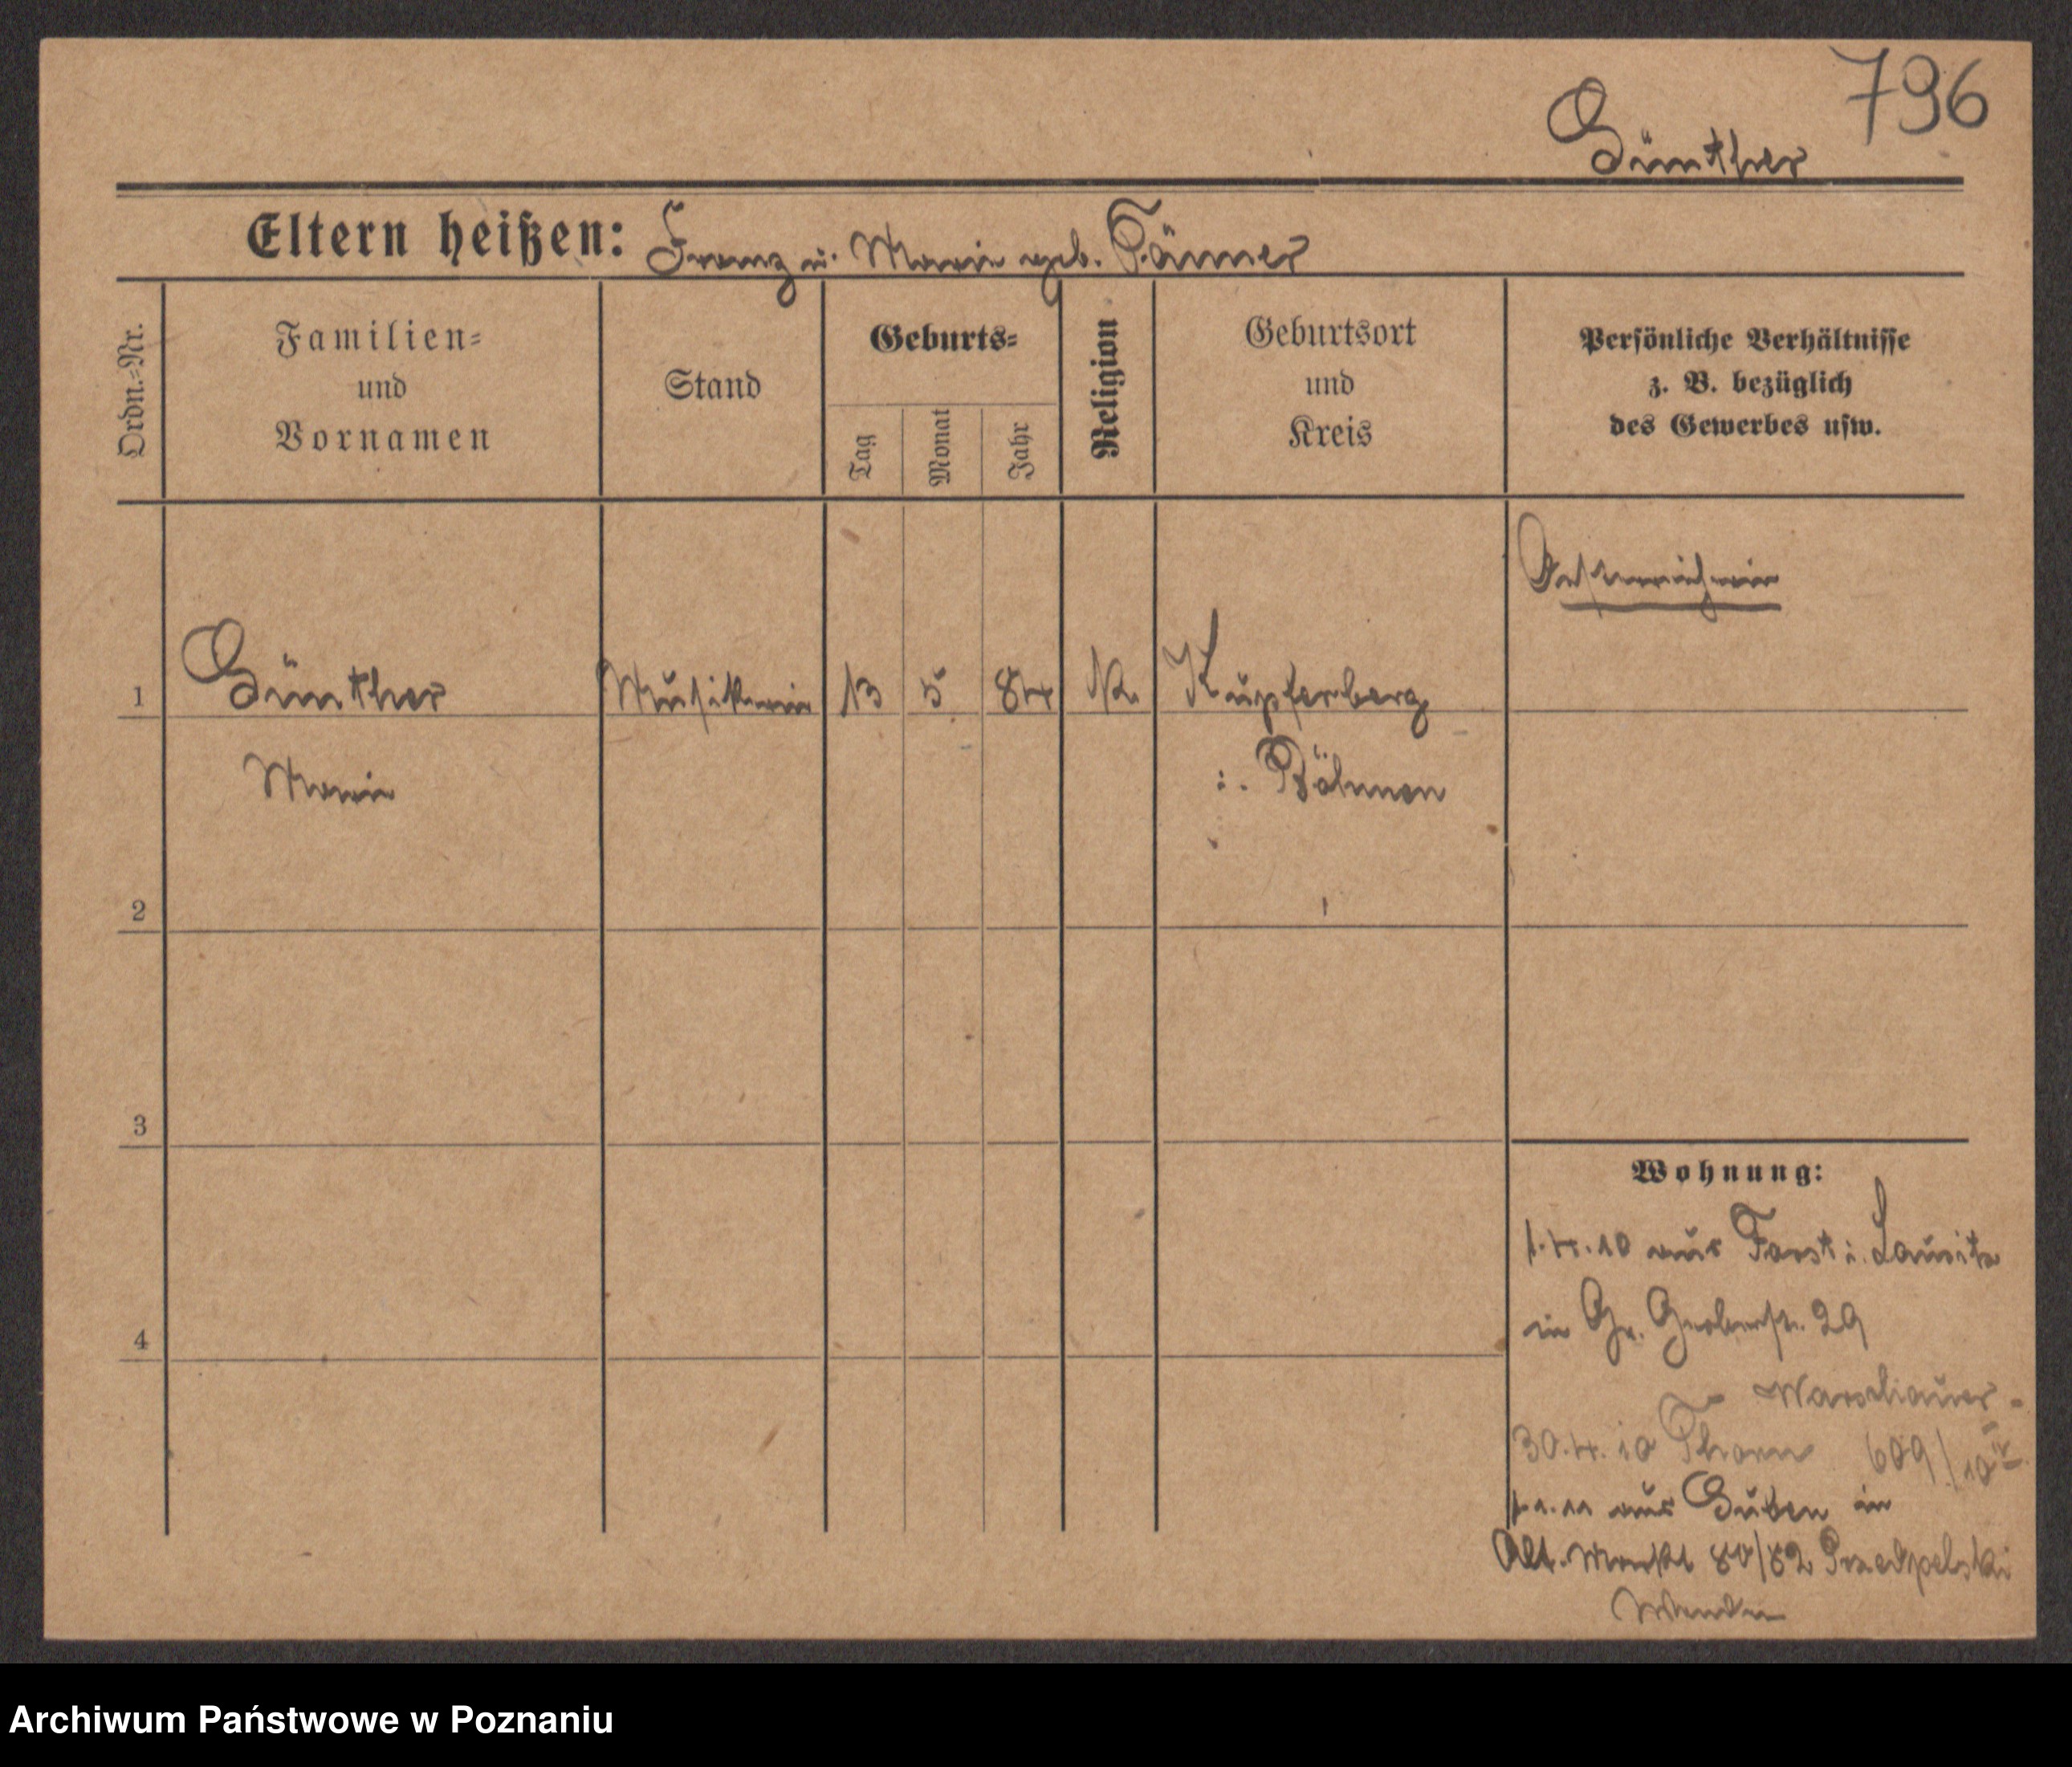 796
Günther
Eltern heißen: Franz u. Marie geb. Tänner
Ordn.-Nr.
Familien-
und
Vornamen
Stand
Geburts-
Tag
Monat
Jahr
Religion
Geburtsort
und
Kreis
Persönliche Verhältnisse
z. B. bezüglich
des Gewerbes usw.
Oesterreicherin
1 Günther Musikerin 13 5 84 K. Kupferberg
Marie i. Böhmen
2
3
4
Wohnung:
1.4.10 aus Forst i. Lausitz
in Gr. Gerberstr. 29
Warschauer-
30.4.10 Thorn 609/10
1.1.11 aus Guben in
Alt. Markt 80/82
Archiwum Państwowe w Poznaniu